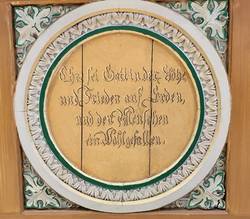 Ehre sei Gott in der Höhe
und Frieden auf Erden,
und den Menschen
ein Wohlgefallen.